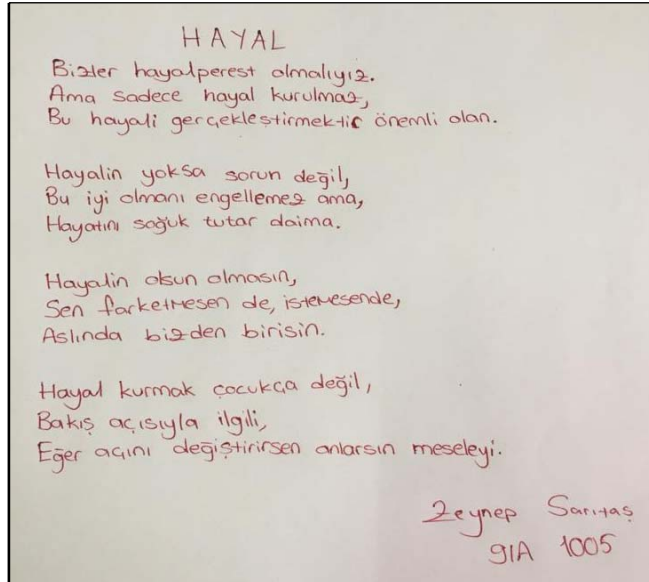 HAYAL
Bizler hayalperest olmalıyız.
Ama sadece hayal kurulmaz,
Bu hayali gerçekleştirmektir önemli olan.
Hayalin yoksa sorun değil,
Bu iyi olmanı engellemez ama,
Hayatını soğuk tutar daima.
Hayalin olsun olmasın,
Sen farketmesen de, istemesende,
Aslında bizden birisin.
Hayal kurmak çocukça değil,
Bakış açısıyla ilgili,
Eğer açını değiştirirsen anlarsın meseleyi.
Zeynep Sarıtaş
9/A 1005